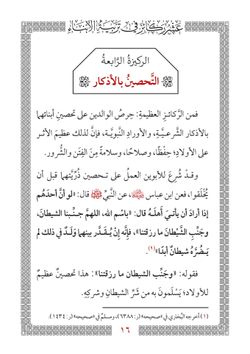 عشر ركائز في تربية الأبناء
الركيزةُ الرَّابعةُ
التَّحصينُ بالأذكارِ
فمن الرَّكائزِ العظيمةِ: حرصُ الوالدين على تحصينِ أبنائهما
بالأذكار الشَّرعيَّةِ، والأورادِ النَّبويَّة، فإنَّ لذلك عظيمَ الأثر
على الأولادِ؛ حِفظًا، وصلاحًا، وسلامةً مِنَ الفِتَن والشُّرور.
وقد شُرعَ للأبوين العملُ على تـحصين ذُرِّيَّتهما قبل أن
يُخْلَقوا، فعن ابن عباس ﵄، عن النَّبيِّ ﷺ قال: «لو أنَّ أحدَهُم
إذا أرَادَ أن يأتيَ أهلَهُ قال: «باسْمِ الله، اللهمَّ جنِّبنا الشيطانَ،
وجنِّبِ الشَّيطانَ ما رزقتنا»، فإنَّه إنْ يُقَدَّر بينهما ولَدٌ في ذلك لم
يَضُرَّهُ شيطانٌ أبدًا»(١).
فقوله: «وجَنِّبِ الشيطان ما رزقتنا»: هذا تحصينٌ عظيمٌ
للأولاد؛ يَسْلَمونَ به من شَرِّ الشيطانِ وشركِهِ.
(١) أخرجه البُخاري في «صحيحه» (ر: ٦٣٨٨)، ومسلمٌ في «صحيحه» (ر: ١٤٣٤).
١٦